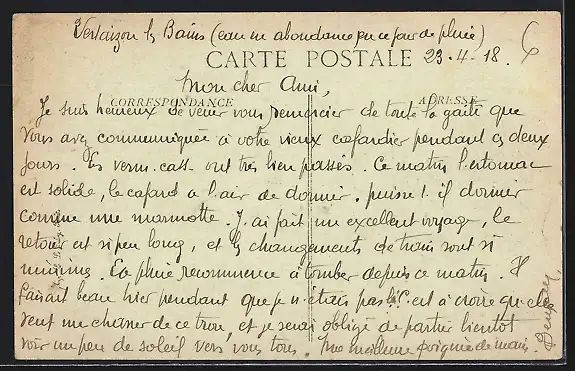 Vertaizon les Bains (eau en abondance, en ce jour de pluie)
CARTE POSTALE 23.4.18. 6
Mon cher Ami,
CORRESPONDANCE ADRESSE
Je suis heureux de venir vous remercier de toute la gaité que
vous avez communiquée à votre vieux cafardier pendant ces deux
jours. Les verm.cass. ont très bien passés. Ce matin l'estomac
est solide, le cafard a l'air de dormir. puisse t-il dormir
comme une marmotte. J'ai fait un excellent voyage, le
retour est si peu long, et les changements de trains sont si
minimes. La pluie recommence à tomber depuis ce matin. Il
faisait beau hier pendant que je n'étais pas là! C'est à croire qu'elle
veut me chasser de ce trou, et je serai obligé de partir bientôt
voir un peu de soleil vers vous tous. Une meilleure poignée de main.